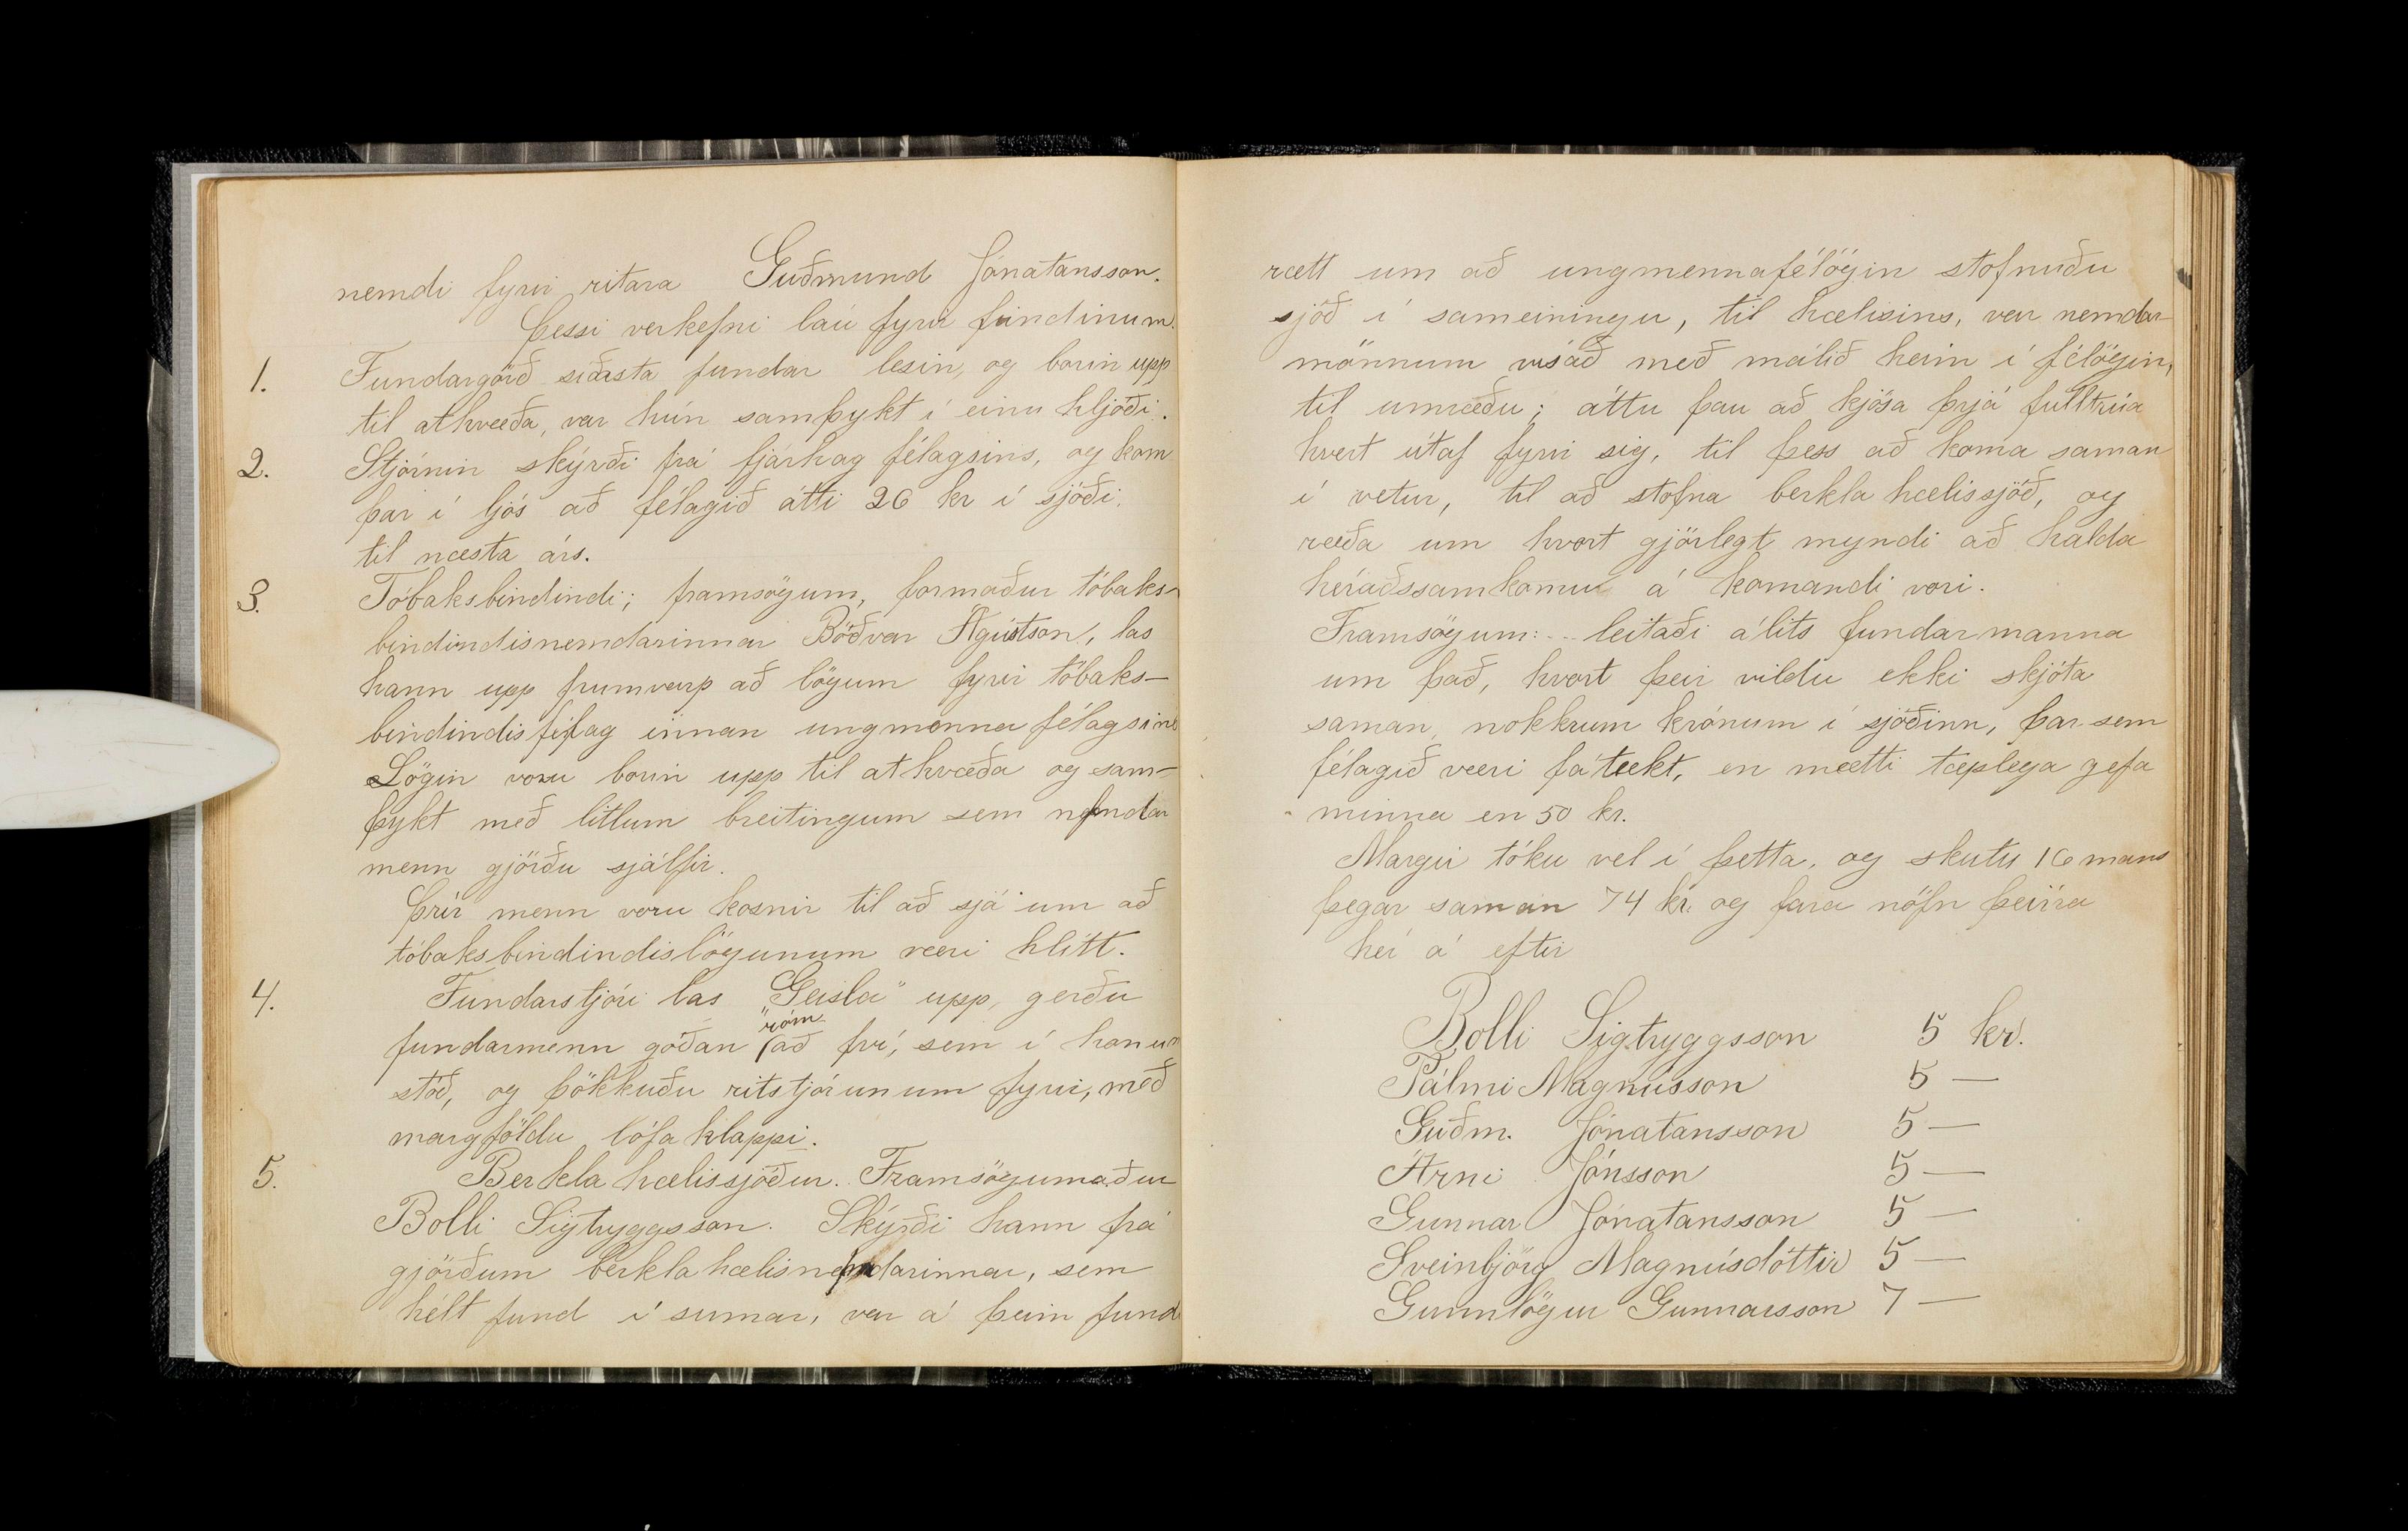 nemdi fyrir ritara Guðmund Jónatansson.
Þessi verkefni láu fyrir fundinum.
1. Fundargörð síðsta fundar lesin, og borin upp
til athvæða, var hún samþykt í einu hljóði.
2. Stjórnin skýrði frá fjárhag félagsins, og kom
þar í ljós að félagið átti 26 kr í sjóði.
til næsta árs.
3. Tóbaksbindindi; framsögum, formaður tóbaks-
bindindisnemdarinnar Böðvar Ágústson, las
hann upp frumvarp að lögum fyrir tóbaks-
bindindisfélag innan ungmenna félagsins
Lögin voru borin upp til athvæða og sam-
þykt með litlum breitingum sem nefndar
menn gjörðu sjálfir.
Þrír menn voru kosnir til að sjá um að
tóbaksbindindislögunum væri hlítt.
4. Fundarstjóri las "Geisla" upp, gerðu
fundarmenn góðan "róm að því, sem í honum
stóð, og þökkuðu ritstjórunum fyrir, með
margföldu lófaklappi.
5. Berklahælissjóður. Framsögumaður
Bolli Sigtryggsson. Skýrði hann frá
gjörðum berklahælisnefndarinnar, sem
hélt fund í sumar, var á þeim fundi
rætt um að ungmennafélögin stofnuðu
sjóð í sameiningu, til hælisins, var nemdar-
mönnum vísað með málið heim í félögin,
til umræðu; áttu þau að kjósa þrjá fulltrúa
hvert útaf fyrir sig, til þess að koma saman
í vetur, til að stofna berklahælissjóð, og
ræða um hvort gjörlegt myndi að halda
héraðssamkomur á komandi vori.
Framsögum:.. leitaði álits fundarmanna
um það, hvort þeir vildu ekki skjóta
saman, nokkrum krónum í sjóðinn, þar sem
félagið væri fátækt, en mætti tæplega gefa
minna en 50 kr.
Margir tóku vel í þetta, og skutu 16 mans
þegar saman 74 kr. og fara nöfn þeirra
hér á eftir
Bolli Sigtryggsson 5 kr.
Pálmi Magnússon 5 —
Guðm. Jónatansson 5 —
Árni Jónsson 5 —
Gunnar Jónatansson 5 —
Sveinbjörg Magnúsdóttir 5 —
Gunnlögur Gunnarsson 7 —